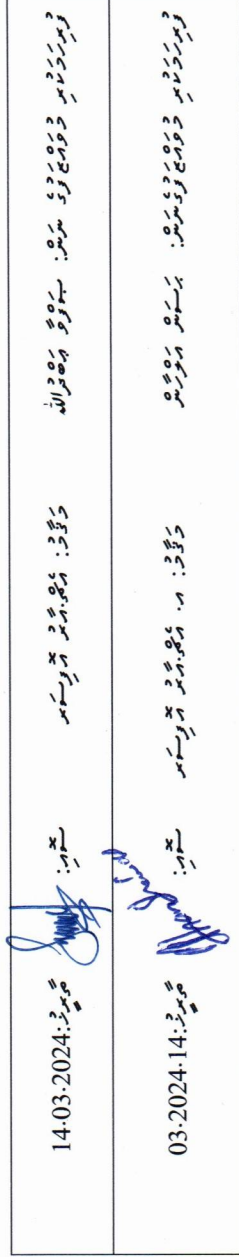 ފުރިހަމަކުރި މުވައްޒަފުގެ ނަން: ސަފްވާ އަބްދުﷲ މަޤާމު: އެޗް.އާރު އޮފިސަރ ސޮއި: ތާރީޚު: 14-03-2024
ފުރިހަމަކުރި މުވައްޒަފުގެނަން: ޙަސަން އަފްރާހް މަޤާމު: އ. އެޗް.އާރު އޮފިސަރ ސޮއި: ތާރީޚު: 14-03-2024